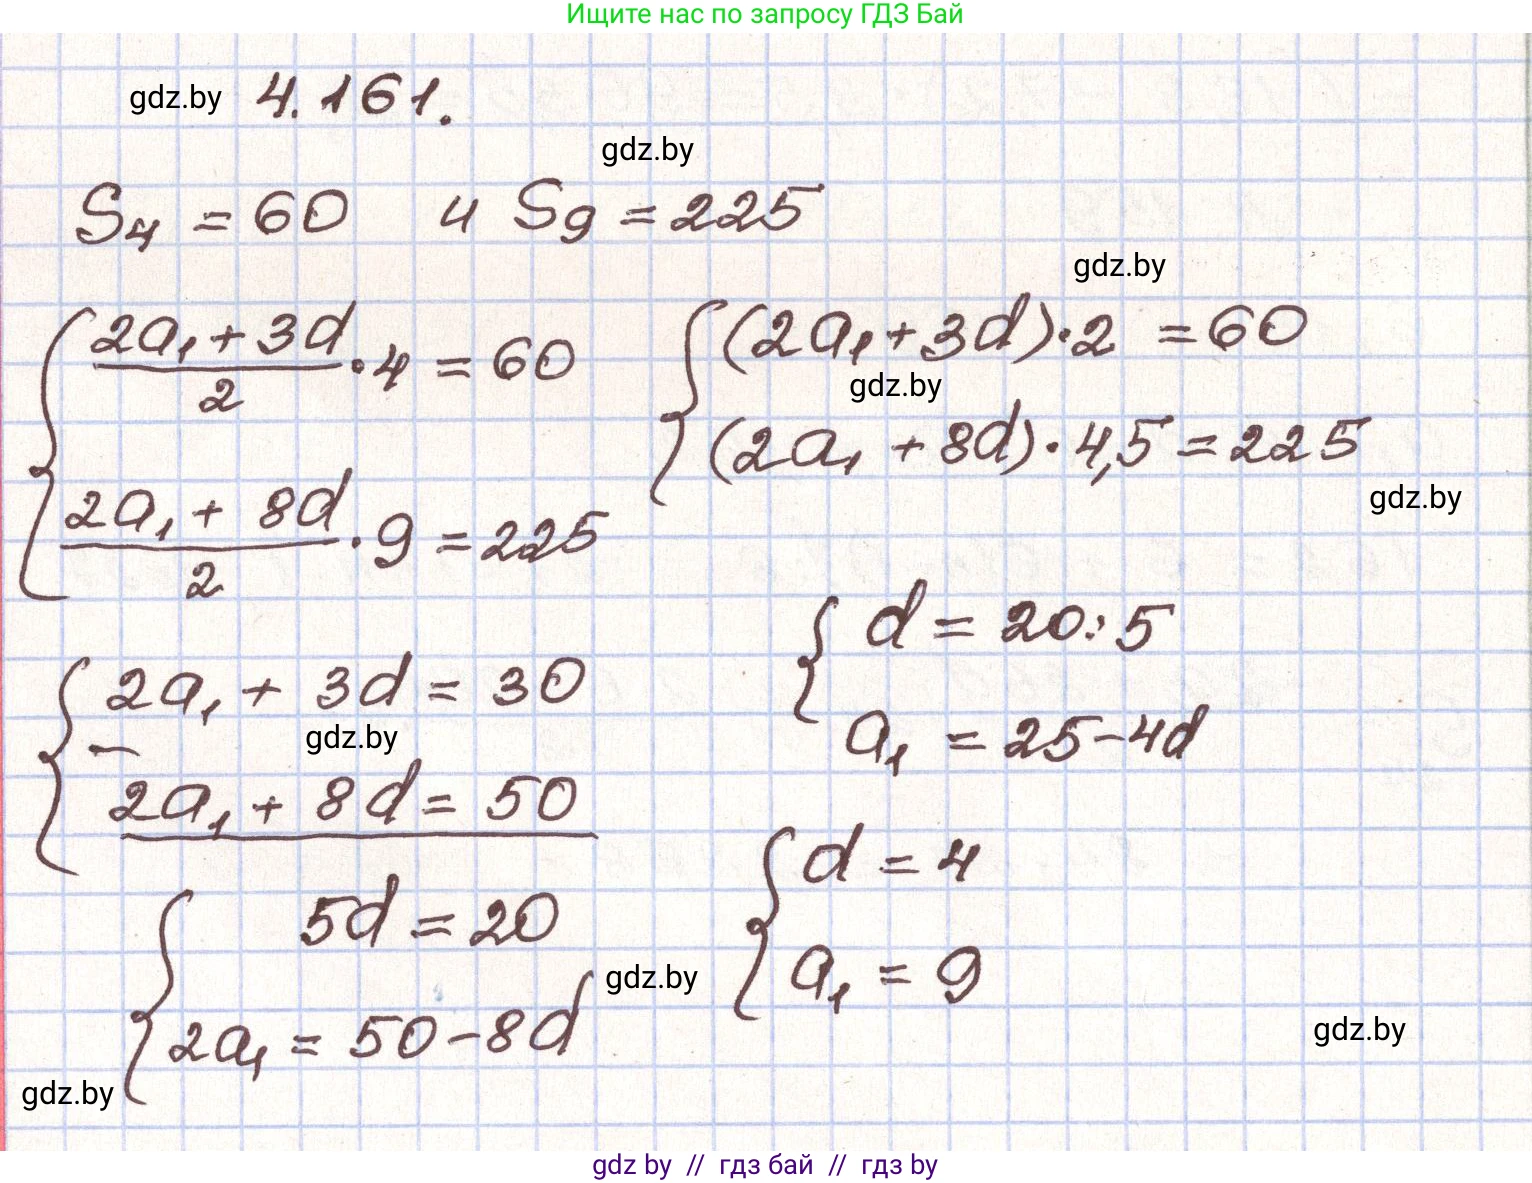 Ищите нас по запросу ГДЗ Бай
gdz.by 4.161.
gdz.by
S₄ = 60 и S₉ = 225
gdz.by
{ (2a₁ + 3d)/2 · 4 = 60
(2a₁ + 8d)/2 · 9 = 225
{ (2a₁ + 3d) · 2 = 60
gdz.by
(2a₁ + 8d) · 4,5 = 225
gdz.by
{ 2a₁ + 3d = 30
− gdz.by
2a₁ + 8d = 50
{ 5d = 20
2a₁ = 50 − 8d
gdz.by
{ d = 20 : 5
a₁ = 25 − 4d
{ d = 4
gdz.by
a₁ = 9
gdz.by
gdz by // гдз бай // гдз by